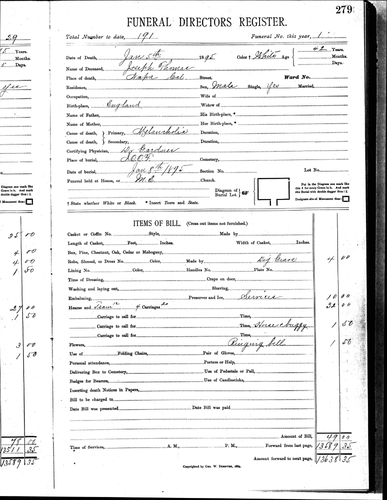 279
FUNERAL DIRECTORS REGISTER.
Total Number to date, 191 Funeral No. this year, 1
Date of Death, Jan 5th 1895 Color † White Age 42 Years.
Name of Deceased, Joseph Months.
Place of death, Napa Cal. Street, Ward No.
Residence, Sex, Male Single, Yes Married,
Occupation, Wife of
Birth-place, England Widow of
Name of Father, His Birth-place, *
Name of Mother, Her Birth-place, *
Cause of death, } Primary, Melancholia Duration,
Cause of death, } Secondary, Duration,
Certifying Physician, Dr Gardner
Place of burial, I.O.O.F. Cemetery,
Date of burial, Jan 8th 1895 Section No. Lot No.
Funeral held at House, or M.E. Church.
Diagram of Burial Lot.
† State whether White or Black. * Insert Town and State.
ITEMS OF BILL. (Cross out items not furnished.)
Casket or Coffin No. Style, Made by
Length of Casket, Feet, Inches. Width of Casket, Inches.
Box, Pine, Chestnut, Oak, Cedar or Mahogany,
Robe, Shroud, or Dress No. Color, Made by Dig Grave 4 00
Lining No. Color, Handles No. Plate No.
Time of Dressing, Crape on door,
Washing and laying out, Shaving,
Embalming, Preserver and Ice, Services 10 00
Hearse and 4 Carriages 20 32 00
Carriage to call for Time,
Carriage to call for Time, Horse & buggy 1 50
Carriage to call for Time,
Flowers, Ringing bell 1 50
Use of Folding Chairs, Pair of Gloves,
Personal attendance, Porters or Help,
Delivering Box to Cemetery, Use of Pedestals or Pall,
Badges for Bearers, Use of Candlesticks,
Inserting death Notices in Papers,
Bill to be charged to
Date Bill was presented Date Bill was paid
Amount of Bill, 49 00
Time of Services, A. M., P. M., Forward from last page, 13589 35
Amount forward to next page, 13638 35